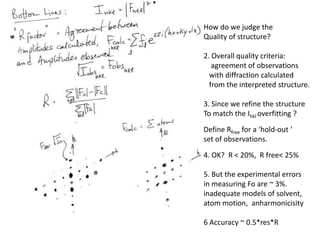 Bottom Lines: I hkl = |F hkl|²
R factor = Agreement between
Amplitudes calculated, Fcalc = Σ f e^2πi(hx+ky+lz)
and Amplitudes observed
√I obs hkl = Fobs hkl
R = Σ||Fo|-|Fc|| / Σ|Fo|
Fcalc = Σ atoms
How do we judge the
Quality of structure?
2. Overall quality criteria:
agreement of observations
with diffraction calculated
from the interpreted structure.
3. Since we refine the structure
To match the Ihkl overfitting ?
Define Rfree for a 'hold-out '
set of observations.
4. OK? R < 20%, R free< 25%
5. But the experimental errors
in measuring Fo are ~ 3%.
inadequate models of solvent,
atom motion, anharmonicisity
6 Accuracy ~ 0.5*res*R